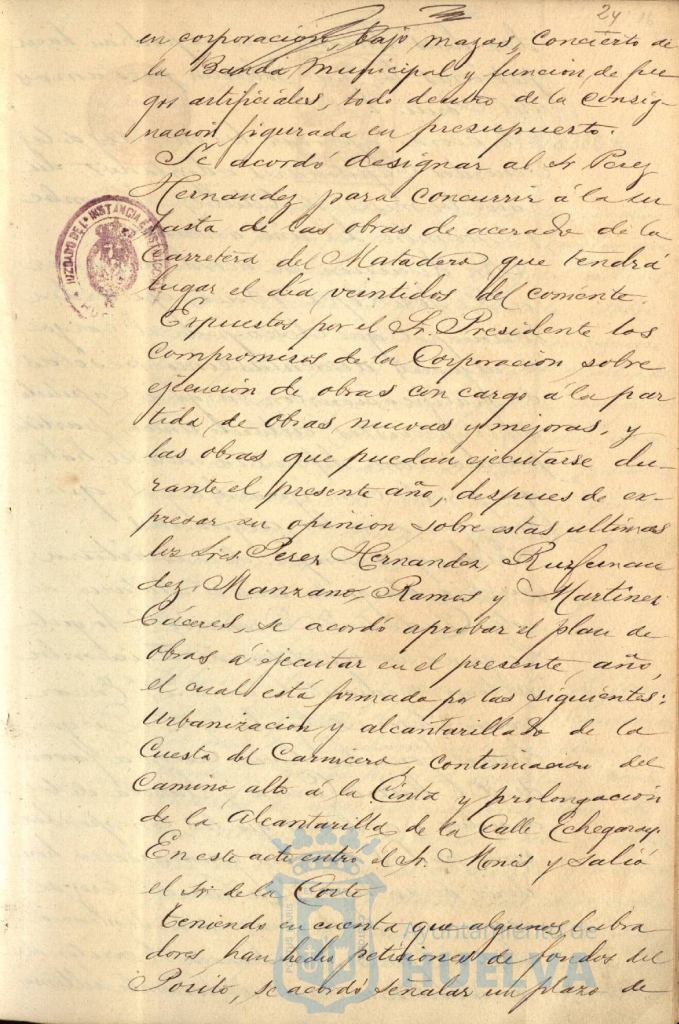 24
en corporacion, bajo mazas, concierto de
la Banda Municipal y funcion de fue
gos artificiales, todo dentro de la consig-
nacion figurada en presupuesto.
Se acordó designar al Sr Perez
Hernandez para concurrir á la su
basta de las obras de acerado de la
Carretera del Matadero que tendrá
lugar el dia veintidos del corriente.
Expuestos por el Sr. Presidente los
compromisos de la Corporacion, sobre
ejecución de obras con cargo á la par
tida de obras nuevas y mejoras, y
las obras que puedan ejecutarse du-
rante el presente año, despues de ex-
presar su opinion sobre estas ultimas
los Sres Perez Hernandez, Ruifernan
dez, Manzano, Ramos y Martinez
Cáceres, se acordó aprobar el plan de
obras á ejecutar en el presente año,
el cual está formado por las siguientes:
Urbanizacion y alcantarillado de la
Cuesta del Carnicero, continuacion del
Camino alto á la Cinta y prolongación
de la Alcantarilla de la Calle Echegaray.
En este acto entró el Sr. Monis y salió
el Sr. de la Corte
Teniendo en cuenta que algunos labra
dores, han hecho peticiones de fondos del
Pósito, se acordó señalar un plazo de
JUZGADO DE 1ª INSTANCIA E INSTRUCCION
Ayuntamiento de
HUELVA